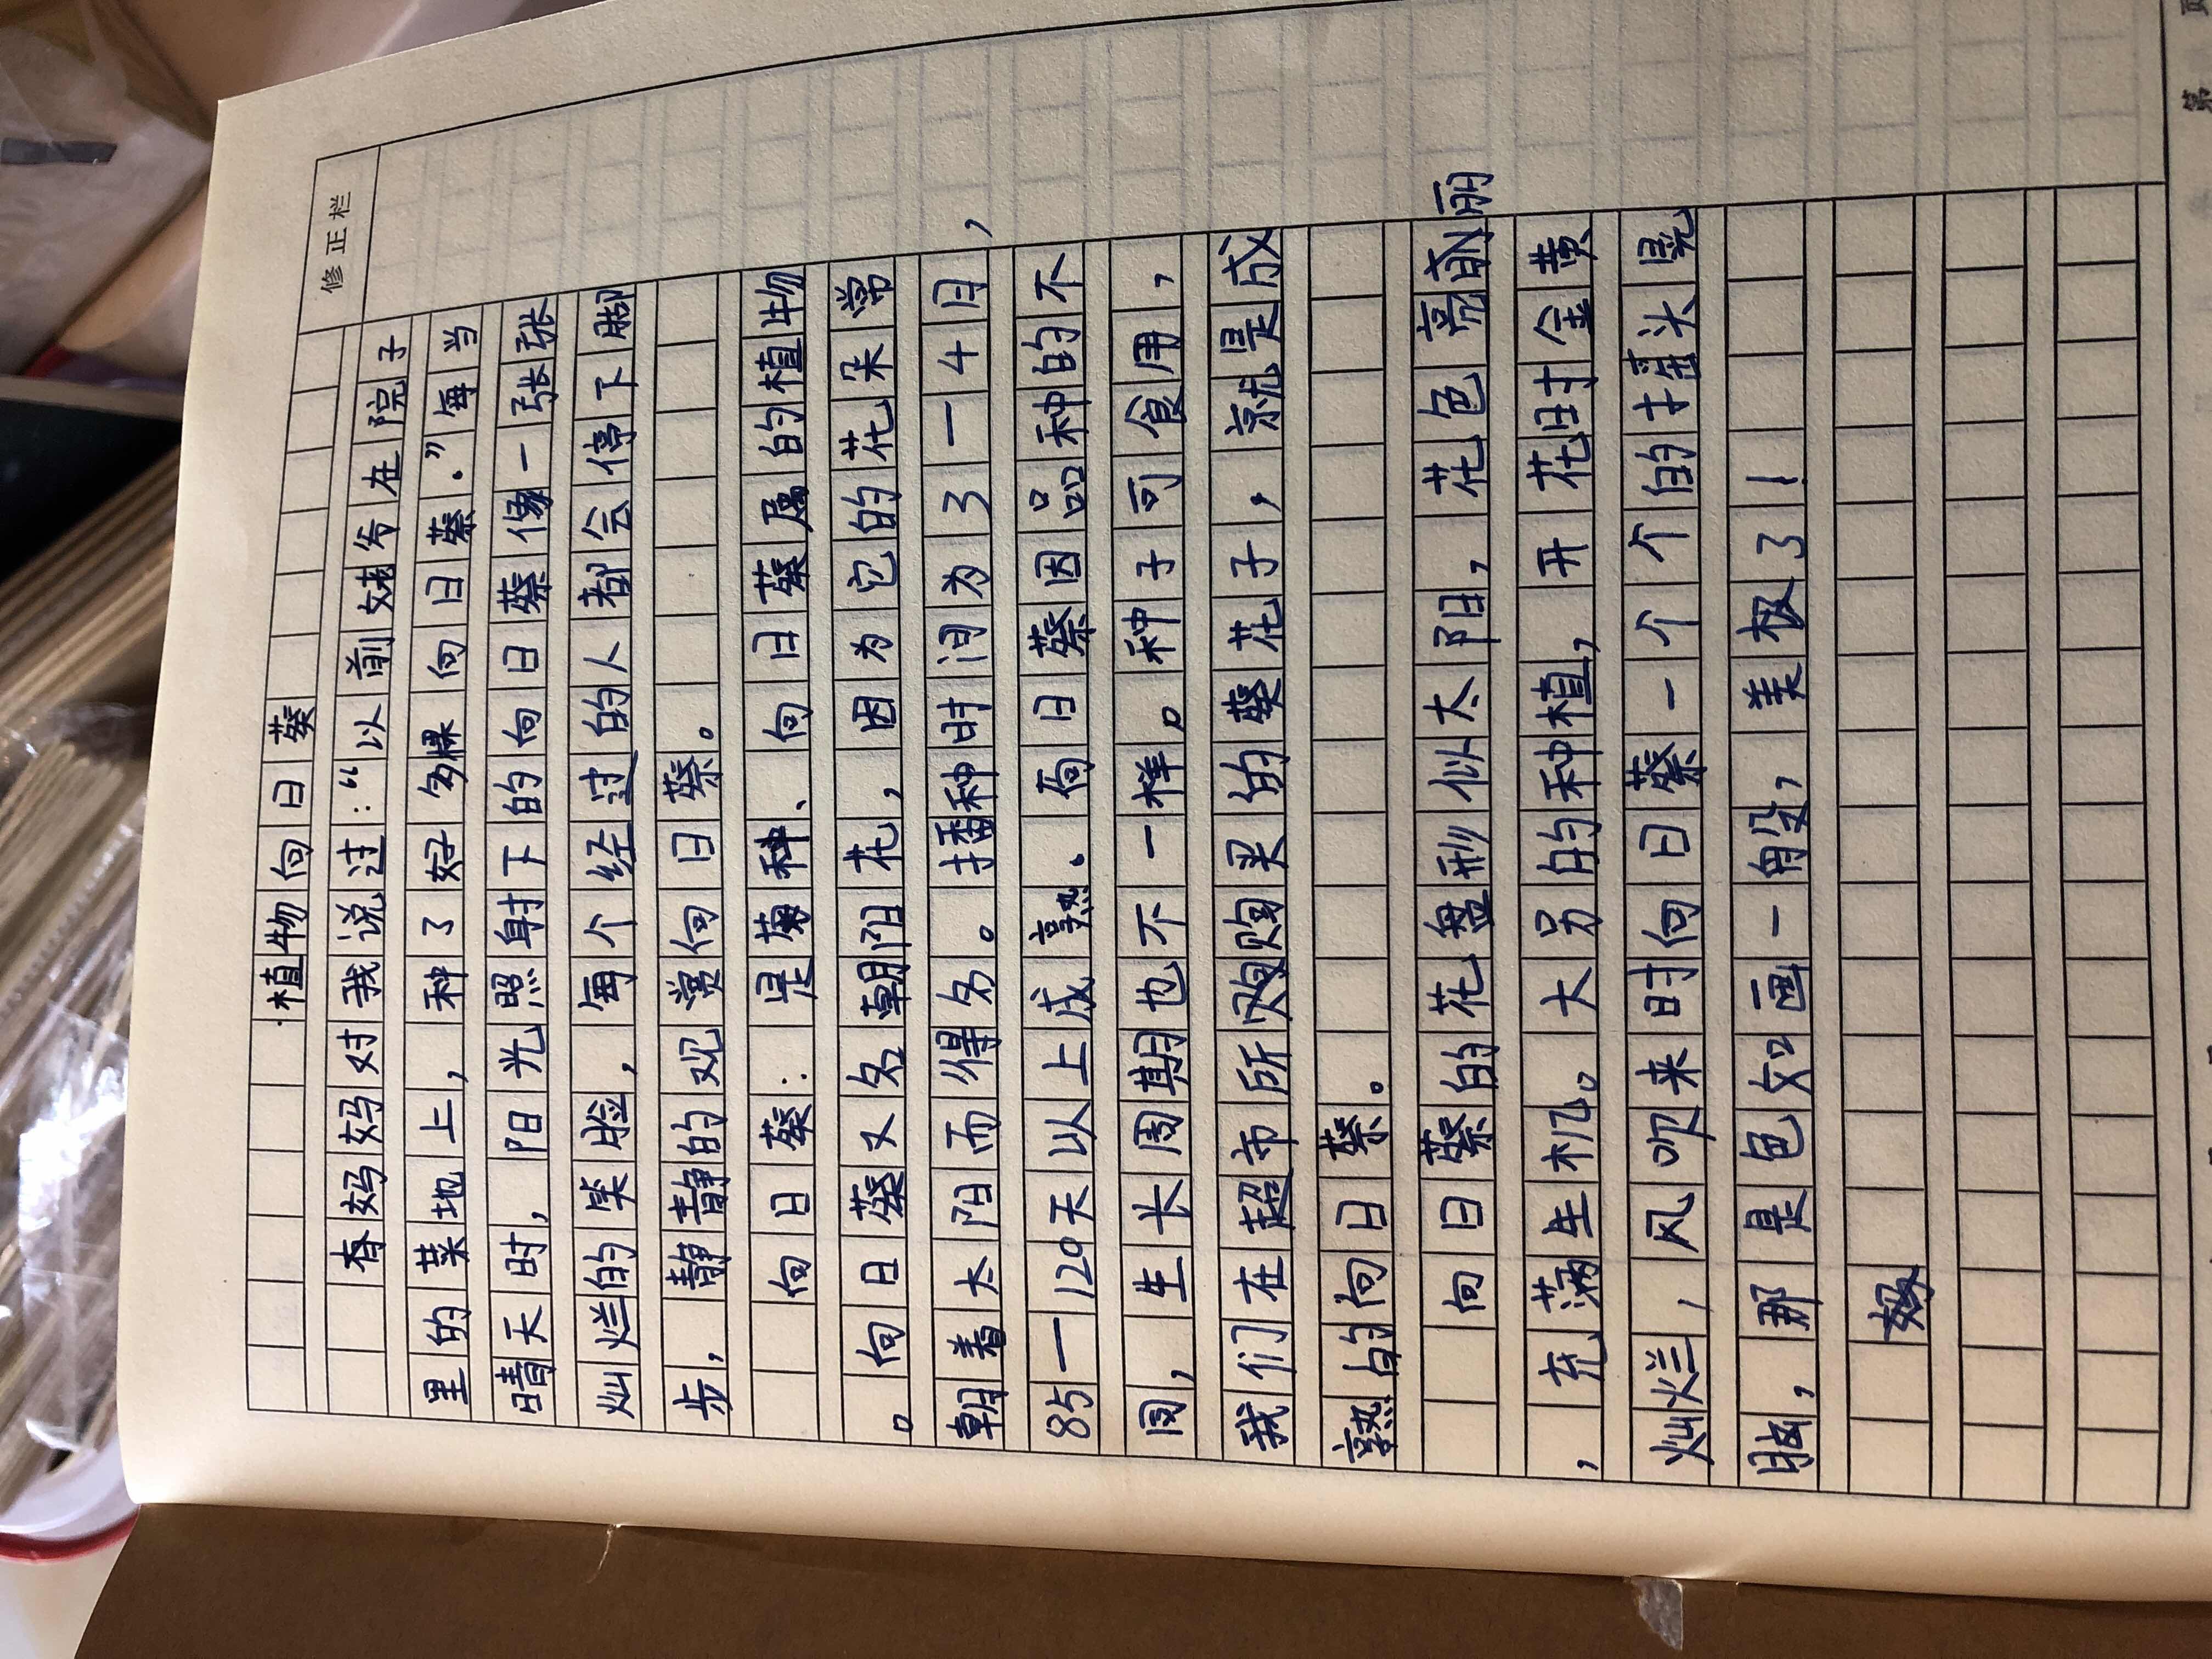 修正栏
植物向日葵
春妈妈对我说过:“以前姥爷在院子
里的菜地上,种了好多棵向日葵.”每当
晴天时,阳光照射下的向日葵像一张张
灿烂的笑脸,每个经过的人都会停下脚
步,静静的观赏向日葵。
向日葵:是菊种、向日葵属的植物
。向日葵又名朝阳花,因为它的花朵常
朝着太阳而得名。播种时间为3一4月,
85一120天以上成熟.向日葵因品种的不
同,生长周期也不一样。种子可食用,
我们在超市所购买的葵花子,就是成
熟的向日葵。
向日葵的花盘形似太阳,花色亮丽
,充满生机。大另的种植,开花时金黄
灿烂,风吹来时向日葵一个个的摇头晃
脑,那是色如画一般,美极了!
第
页